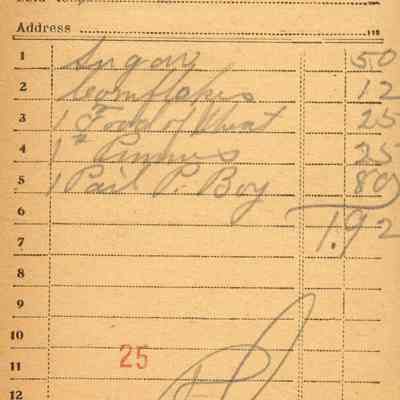 Address
1 Sugar 50
2 Cornflakes 12
3 1 Food of Wheat 25
4 1# Prunes 25
5 1 Pail P. Boy 80
6
7 1.92
8
9
10
11 25
12